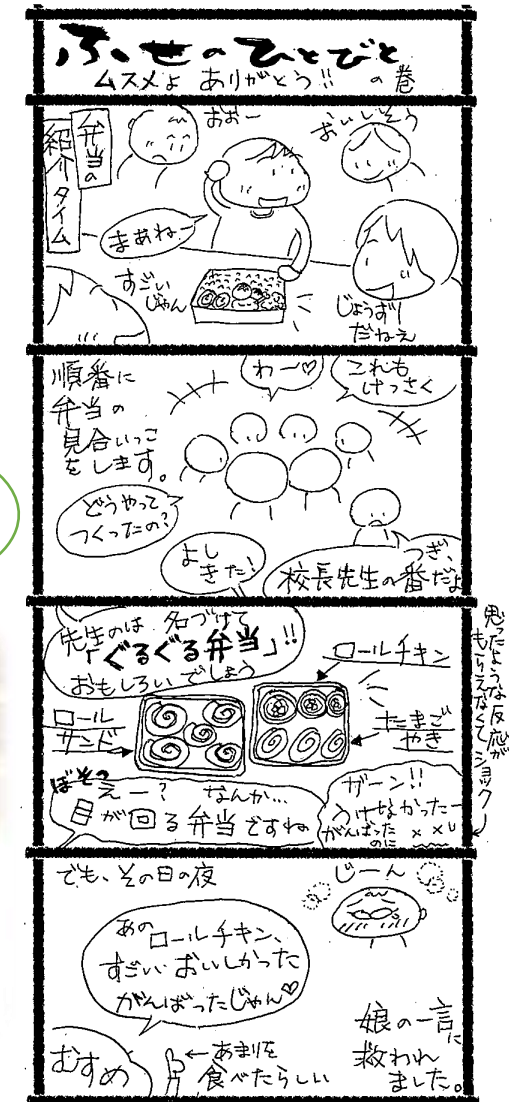 ふせのひとびと
ムスメよ ありがとう!! の巻
弁当の
紹介タイム
おおー
おいしそう
まあねー
すごい
じゃん
じょうずり
だねぇ
順番に
弁当の
見合いっこ
をします。
わー♡
これも
けっさく
どうやって
つくったの?
よし
きた!
つぎ、
校長先生の番だよ
先生のは 名づけて
「ぐるぐる弁当」!!
おもしろいでしょう
ロールチキン
ロール
サンド
たまご
やき
思ったような反応が
もらえなくてショック
ぼそっ
えー? なんか…
目が回る弁当ですね
ガーン!!
うけなかったー
がんばった
のに
でも、その日の夜
じーん
あの
ロールチキン、
すごい おいしかった
がんばったじゃん♡
むすめ
←あまりを
食べたらしい
娘の一言
に
救われ
ました。